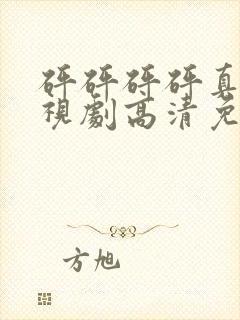 砰砰砰砰真
視劇高清免
方旭